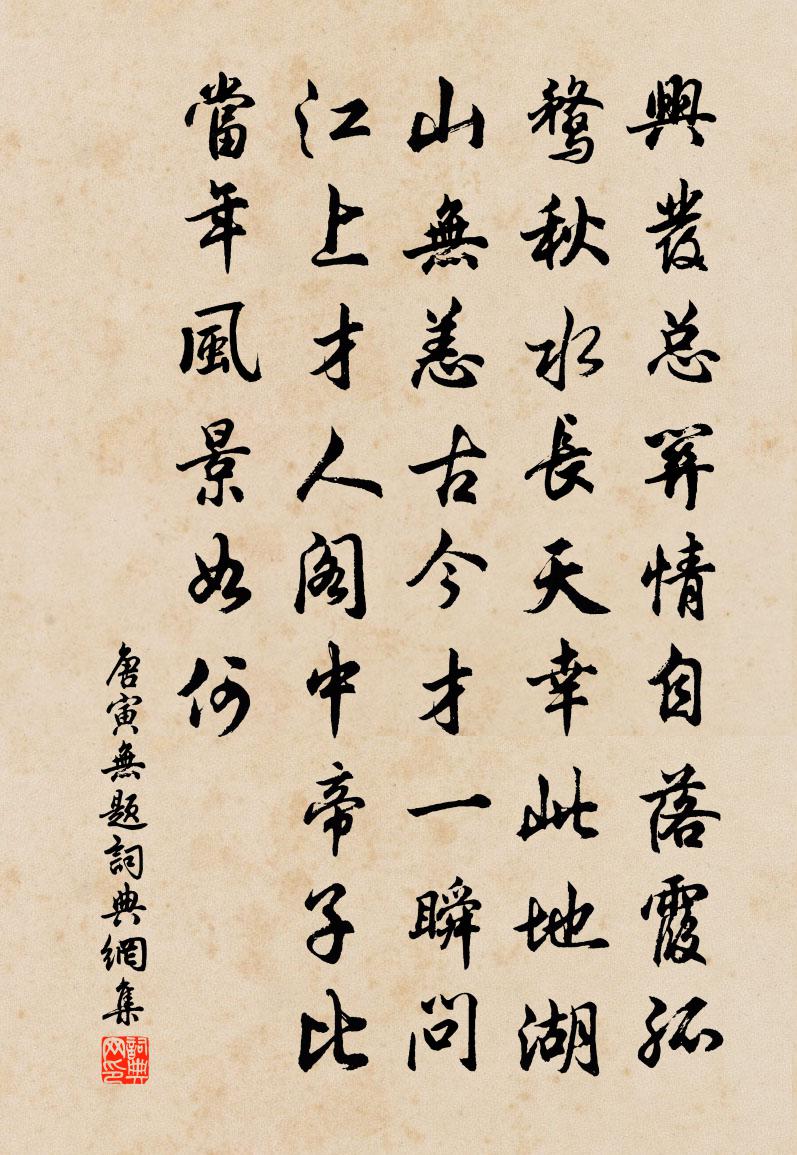 興發总關情自落霞孤
鶩秋水長天幸此地湖
山無恙古今才一瞬問
江上才人阁中帝子比
當年風景如何
唐寅無题詞典網集
詞典网印